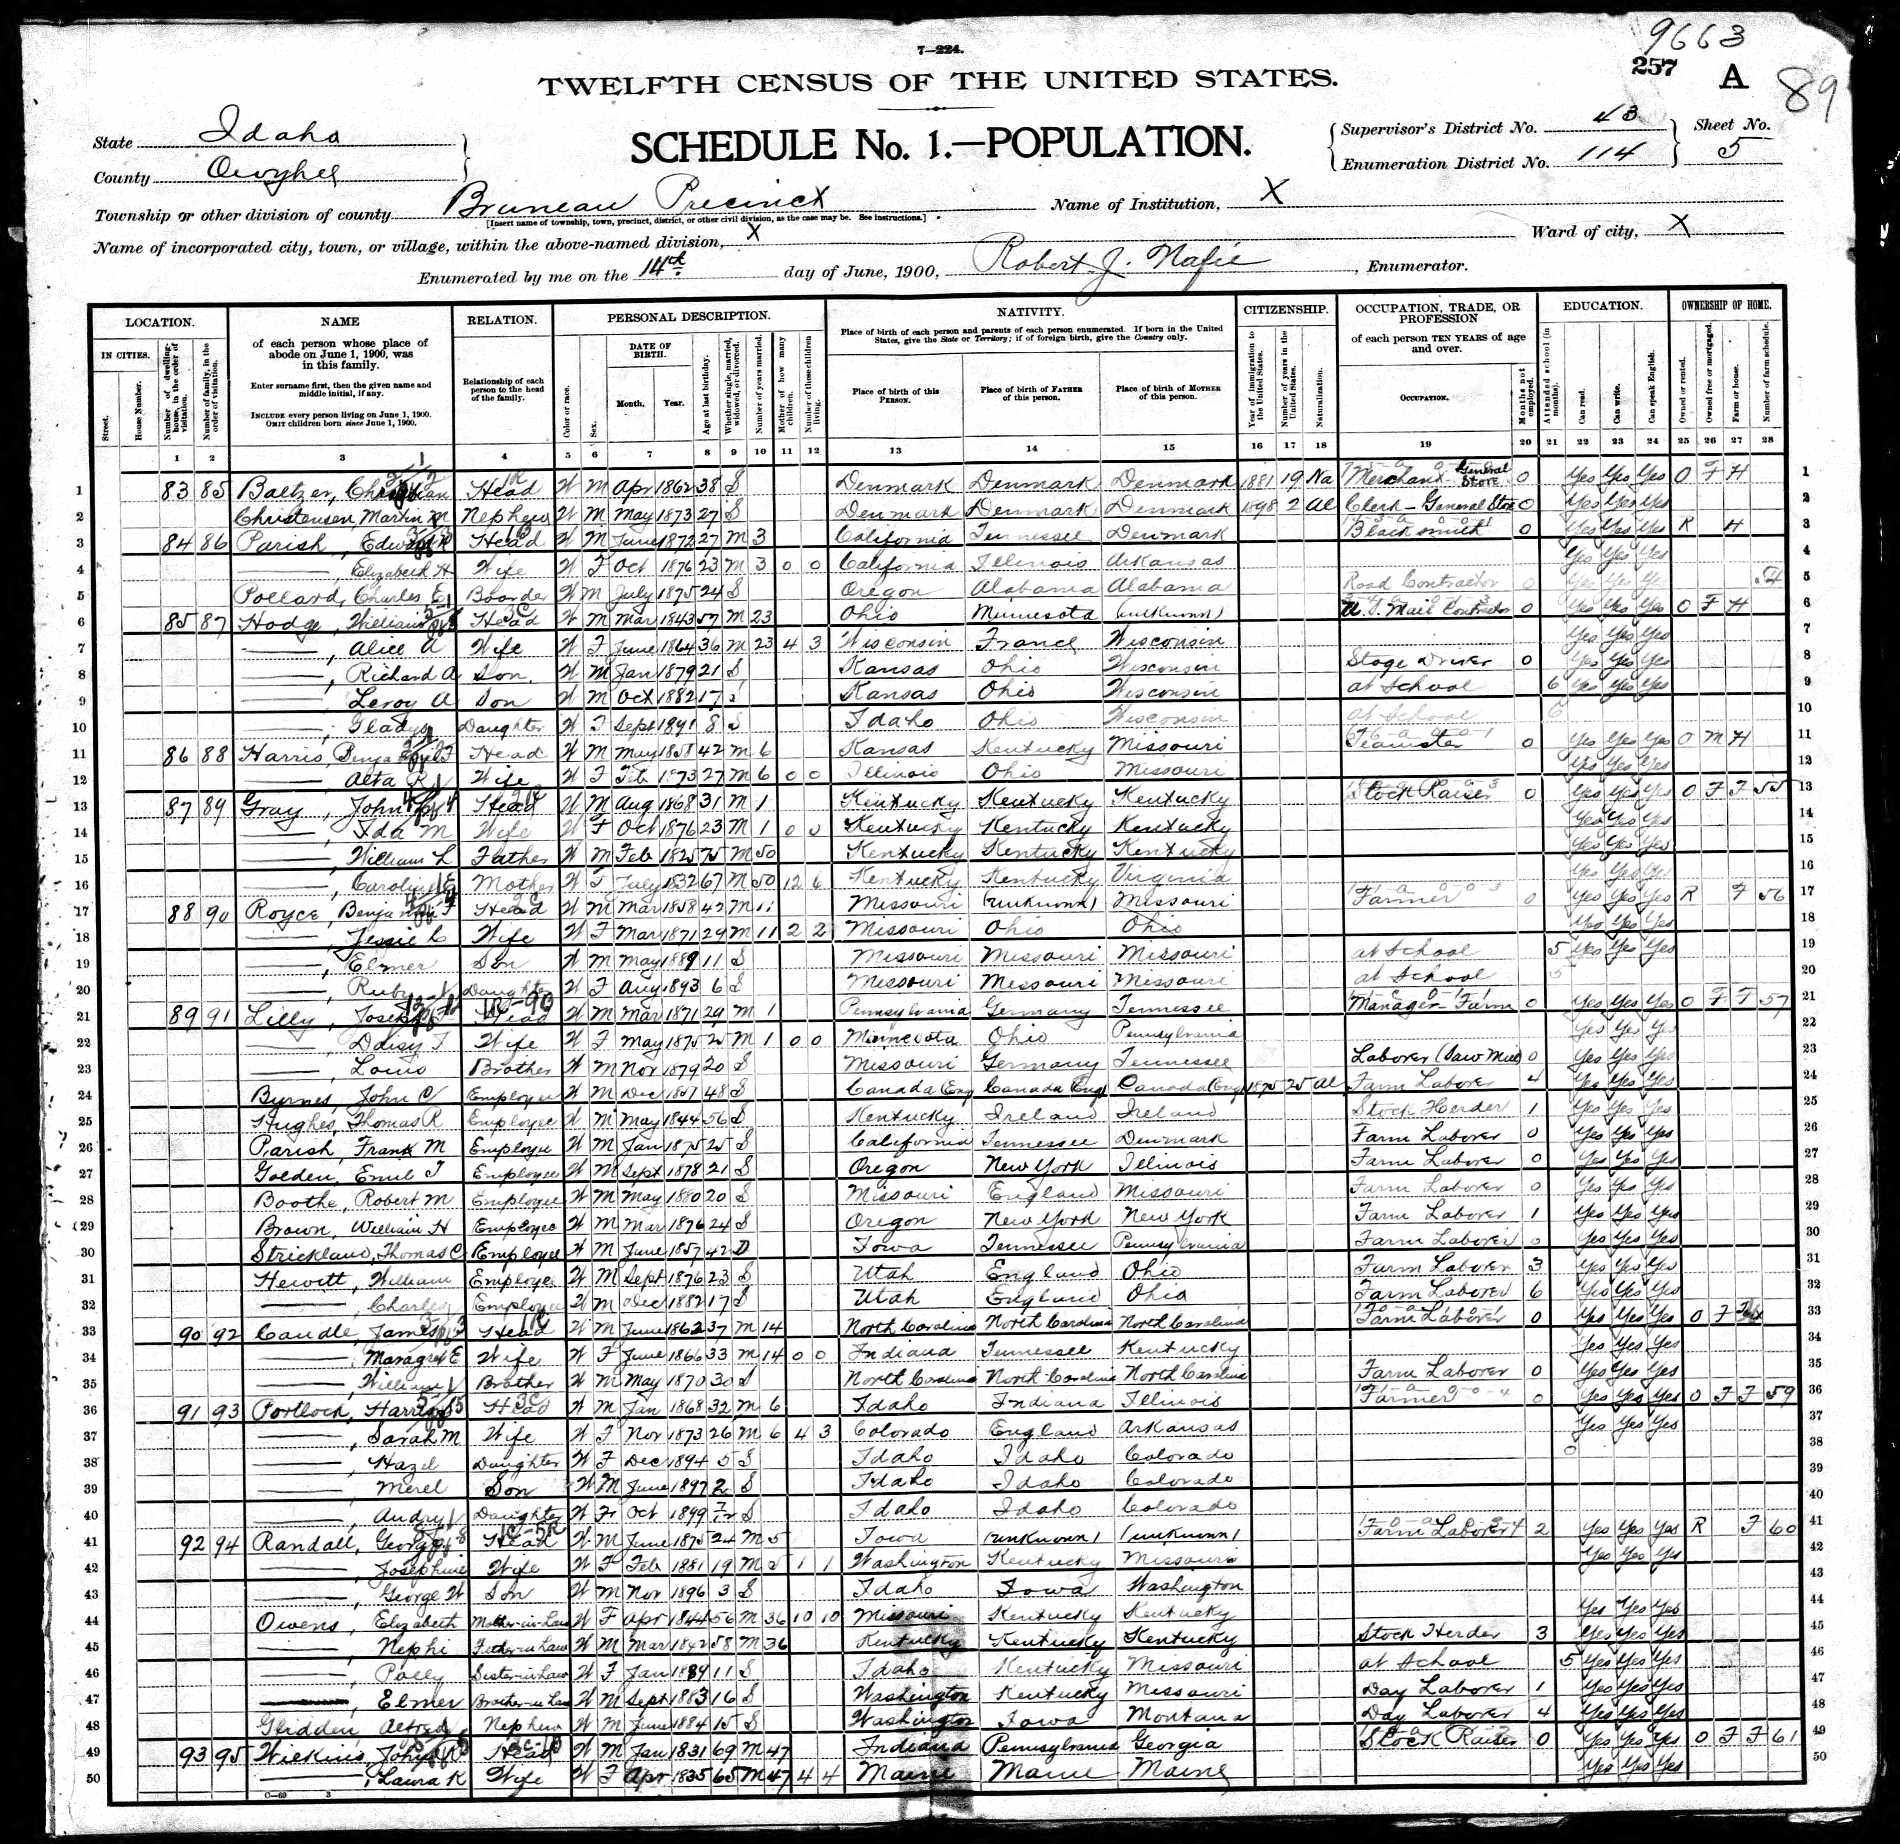 9663
7—224.
257 A 89
TWELFTH CENSUS OF THE UNITED STATES.
State Idaho
County Owyhee
SCHEDULE No. 1.—POPULATION.
Supervisor's District No. 43
Enumeration District No. 114
Sheet No. 5
Township or other division of county Bruneau Precinct Name of Institution, X
[Insert name of township, town, precinct, district, or other civil division, as the case may be. See instructions.]
Name of incorporated city, town, or village, within the above-named division, X Ward of city, X
Enumerated by me on the 14th day of June, 1900, Robert J. Nafie, Enumerator.
LOCATION. NAME RELATION. PERSONAL DESCRIPTION. NATIVITY. CITIZENSHIP. OCCUPATION, TRADE, OR PROFESSION EDUCATION. OWNERSHIP OF HOME.
IN CITIES. Street. House Number. Number of dwelling-house, in the order of visitation. Number of family, in the order of visitation.
of each person whose place of abode on June 1, 1900, was in this family.
Enter surname first, then the given name and middle initial, if any.
INCLUDE every person living on June 1, 1900. OMIT children born since June 1, 1900.
Relationship of each person to the head of the family.
Color or race. Sex. DATE OF BIRTH. Month. Year. Age at last birthday. Whether single, married, widowed, or divorced. Number of years married. Mother of how many children. Number of these children living.
Place of birth of each person and parents of each person enumerated. If born in the United States, give the State or Territory; if of foreign birth, give the Country only.
Place of birth of this PERSON. Place of birth of FATHER of this person. Place of birth of MOTHER of this person.
Year of immigration to the United States. Number of years in the United States. Naturalization.
of each person TEN YEARS of age and over. OCCUPATION. Months not employed.
Attended school (in months). Can read. Can write. Can speak English.
Owned or rented. Owned free or mortgaged. Farm or house. Number of farm schedule.
1 2 3 4 5 6 7 8 9 10 11 12 13 14 15 16 17 18 19 20 21 22 23 24 25 26 27 28
1 83 85 Baltzer, Christian Head W M Apr 1862 38 S Denmark Denmark Denmark 1881 19 Na Merchant General Store 0 Yes Yes Yes O F H 1
2 Christensen, Martin M Nephew W M May 1873 27 S Denmark Denmark Denmark 1898 2 Al Clerk - General Store 0 Yes Yes Yes 2
3 84 86 Parish, Edward Head W M June 1872 27 M 3 California Tennessee Denmark Blacksmith 0 Yes Yes Yes R H 3
4 ——, Elizabeth H Wife W F Oct 1876 23 M 3 0 0 California Illinois Arkansas Yes Yes Yes 4
5 Pollard, Charles E Boarder W M July 1875 24 S Oregon Alabama Alabama Road Contractor 0 Yes Yes Yes 5
6 85 87 Hodge, William Head W M Mar 1843 57 M 23 Ohio Minnesota (unknown) U.S. Mail Contractor 0 Yes Yes Yes O F H 6
7 ——, Alice A Wife W F June 1864 36 M 23 4 3 Wisconsin France Wisconsin Yes Yes Yes 7
8 ——, Richard A Son W M Jan 1879 21 S Kansas Ohio Wisconsin Stage Driver 0 Yes Yes Yes 8
9 ——, Leroy A Son W M Oct 1882 17 S Kansas Ohio Wisconsin at School 6 Yes Yes Yes 9
10 ——, Gladys Daughter W F Sept 1891 8 S Idaho Ohio Wisconsin at School 6 10
11 86 88 Harris, Benjamin F Head W M May 1858 42 M 6 Kansas Kentucky Missouri Teamster 0 Yes Yes Yes O M H 11
12 ——, Alta R Wife W F Feb 1873 27 M 6 0 0 Illinois Ohio Missouri Yes Yes Yes 12
13 87 89 Gray, John Head W M Aug 1868 31 M 1 Kentucky Kentucky Kentucky Stock Raiser 0 Yes Yes Yes O F F 55 13
14 ——, Ida M Wife W F Oct 1876 23 M 1 0 0 Kentucky Kentucky Kentucky Yes Yes Yes 14
15 ——, William L Father W M Feb 1825 75 M 50 Kentucky Kentucky Kentucky Yes Yes Yes 15
16 ——, Caroline E Mother W F July 1832 67 M 50 12 6 Kentucky Kentucky Virginia Yes Yes Yes 16
17 88 90 Royce, Benjamin F Head W M Mar 1858 42 M 11 Missouri (unknown) Missouri Farmer 0 Yes Yes Yes R F 56 17
18 ——, Jessie C Wife W F Mar 1871 29 M 11 2 2 Missouri Ohio Ohio Yes Yes Yes 18
19 ——, Elmer Son W M May 1889 11 S Missouri Missouri Missouri at School 5 Yes Yes Yes 19
20 ——, Ruby Daughter W F Aug 1893 6 S Missouri Missouri Missouri at School 5 20
21 89 91 Lilly, Joseph F Head W M Mar 1871 29 M 1 Pennsylvania Germany Tennessee Manager - Farm 0 Yes Yes Yes O F F 57 21
22 ——, Daisy F Wife W F May 1875 25 M 1 0 0 Minnesota Ohio Pennsylvania Yes Yes Yes 22
23 ——, Louis Brother W M Nov 1879 20 S Missouri Germany Tennessee Laborer (Saw Mill) 0 Yes Yes Yes 23
24 Byrnes, John C Employee W M Dec 1851 48 S Canada Eng Canada Eng Canada Eng 1875 25 Al Farm Laborer 4 Yes Yes Yes 24
25 Hughes, Thomas R Employee W M May 1844 56 S Kentucky Ireland Ireland Stock Herder 1 Yes Yes Yes 25
26 Parish, Frank M Employee W M Jan 1875 25 S California Tennessee Denmark Farm Laborer 0 Yes Yes Yes 26
27 Golden, Emil T Employee W M Sept 1878 21 S Oregon New York Illinois Farm Laborer 0 Yes Yes Yes 27
28 Boothe, Robert M Employee W M May 1880 20 S Missouri England Missouri Farm Laborer 0 Yes Yes Yes 28
29 Brown, William H Employee W M Mar 1876 24 S Oregon New York New York Farm Laborer 1 Yes Yes Yes 29
30 Strickland, Thomas C Employee W M June 1857 42 D Iowa Tennessee Pennsylvania Farm Laborer 0 Yes Yes Yes 30
31 Hewitt, William Employee W M Sept 1876 23 S Utah England Ohio Farm Laborer 3 Yes Yes Yes 31
32 ——, Charles Employee W M Dec 1882 17 S Utah England Ohio Farm Laborer 6 Yes Yes Yes 32
33 90 92 Caudle, James Head W M June 1862 37 M 14 North Carolina North Carolina North Carolina Farm Laborer 0 Yes Yes Yes O F 33
34 ——, Maragret E Wife W F June 1866 33 M 14 0 0 Indiana Tennessee Kentucky Yes Yes Yes 34
35 ——, William Brother W M May 1870 30 S North Carolina North Carolina North Carolina Farm Laborer 0 Yes Yes Yes 35
36 91 93 Portlock, Harrison Head W M Jan 1868 32 M 6 Idaho Indiana Illinois Farmer 0 Yes Yes Yes O F F 59 36
37 ——, Sarah M Wife W F Nov 1873 26 M 6 4 3 Colorado England Arkansas Yes Yes Yes 37
38 ——, Hazel Daughter W F Dec 1894 5 S Idaho Idaho Colorado 0 38
39 ——, Merel Son W M June 1897 2 S Idaho Idaho Colorado 39
40 ——, Audry Daughter W F Oct 1899 7/12 S Idaho Idaho Colorado 40
41 92 94 Randall, George Head W M June 1875 24 M 5 Iowa (unknown) (unknown) Farm Laborer 2 Yes Yes Yes R F 60 41
42 ——, Josephine Wife W F Feb 1881 19 M 5 1 1 Washington Kentucky Missouri Yes Yes Yes 42
43 ——, George W Son W M Nov 1896 3 S Idaho Iowa Washington 43
44 Owens, Elizabeth Mother-in-Law W F Apr 1844 56 M 36 10 10 Missouri Kentucky Kentucky Yes Yes Yes 44
45 ——, Nephi Father-in-Law W M Mar 1842 58 M 36 Kentucky Kentucky Kentucky Stock Herder 3 Yes Yes Yes 45
46 ——, Polly Sister-in-Law W F Jan 1889 11 S Idaho Kentucky Missouri at School 5 Yes Yes Yes 46
47 ——, Elmer Brother-in-Law W M Sept 1883 16 S Washington Kentucky Missouri Day Laborer 1 Yes Yes Yes 47
48 Glidden, Alfred Nephew W M June 1884 15 S Washington Iowa Montana Day Laborer 4 Yes Yes Yes 48
49 93 95 Wilkins, John Head W M Jan 1831 69 M 47 Indiana Pennsylvania Georgia Stock Raiser 0 Yes Yes Yes O F F 61 49
50 ——, Laura K Wife W F Apr 1835 65 M 47 4 4 Maine Maine Maine Yes Yes Yes 50
C—69 3